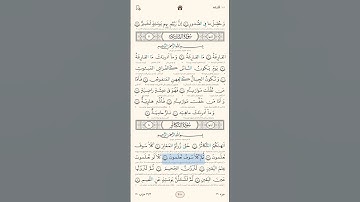 وَحُصِّلَ مَا فِي ٱلصُّدُورِ ۝ إِنَّ رَبَّهُم بِهِمْ يَوْمَئِذٍ لَّخَبِيرٌ ۝
سُورَةُ القَارِعَةِ
بِسْمِ ٱللَّهِ ٱلرَّحْمَٰنِ ٱلرَّحِيمِ
ٱلْقَارِعَةُ ۝ مَا ٱلْقَارِعَةُ ۝ وَمَآ أَدْرَىٰكَ مَا ٱلْقَارِعَةُ
۝ يَوْمَ يَكُونُ ٱلنَّاسُ كَٱلْفَرَاشِ ٱلْمَبْثُوثِ
۝ وَتَكُونُ ٱلْجِبَالُ كَٱلْعِهْنِ ٱلْمَنفُوشِ ۝ فَأَمَّا
مَن ثَقُلَتْ مَوَٰزِينُهُۥ ۝ فَهُوَ فِي عِيشَةٍ رَّاضِيَةٍ ۝
وَأَمَّا مَنْ خَفَّتْ مَوَٰزِينُهُۥ ۝ فَأُمُّهُۥ هَاوِيَةٌ ۝
وَمَآ أَدْرَىٰكَ مَا هِيَهْ ۝ نَارٌ حَامِيَةٌ ۝
سُورَةُ التَّكَاثُرِ
بِسْمِ ٱللَّهِ ٱلرَّحْمَٰنِ ٱلرَّحِيمِ
أَلْهَىٰكُمُ ٱلتَّكَاثُرُ ۝ حَتَّىٰ زُرْتُمُ ٱلْمَقَابِرَ ۝ كَلَّا سَوْفَ
تَعْلَمُونَ ۝ ثُمَّ كَلَّا سَوْفَ تَعْلَمُونَ ۝ كَلَّا لَوْ تَعْلَمُونَ
عِلْمَ ٱلْيَقِينِ ۝ لَتَرَوُنَّ ٱلْجَحِيمَ ۝ ثُمَّ لَتَرَوُنَّهَا
عَيْنَ ٱلْيَقِينِ ۝ ثُمَّ لَتُسْـَٔلُنَّ يَوْمَئِذٍ عَنِ ٱلنَّعِيمِ ۝